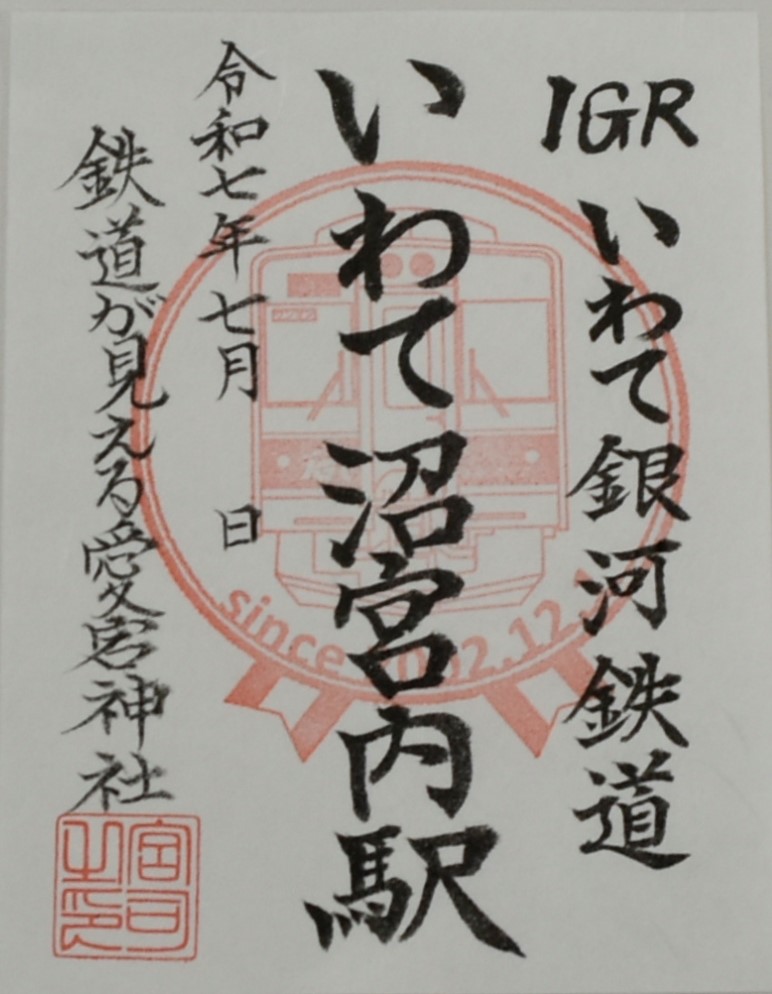 IGRいわて銀河鉄道
いわて沼宮内駅
令和七年七月 日
鉄道が見える愛宕神社
since 2002.12.1
宮司之印